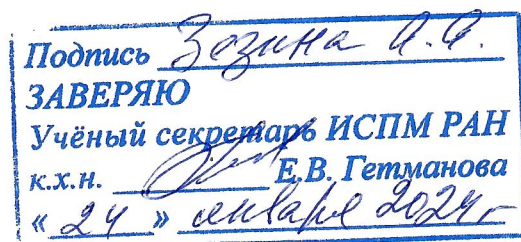 Подпись Зезина А.А.
ЗАВЕРЯЮ
Учёный секретарь ИСПМ РАН
к.х.н. Е.В. Гетманова
« 24 » января 2024 г